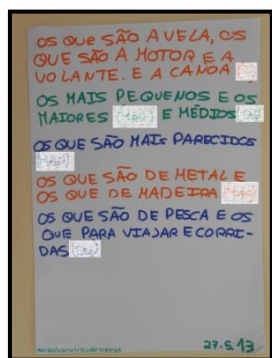 OS QUE SÃO A VELA, OS
QUE SÃO A MOTOR E A
VOLANTE. E A CANOA
OS MAIS PEQUENOS E OS
MAIORES E MÉDIOS
OS QUE SÃO MAIS PARECIDOS
OS QUE SÃO DE METAL E
OS QUE DE MADEIRA
OS QUE SÃO DE PESCA E OS
QUE PARA VIAJAR E CORRI-
DAS
27.5.13